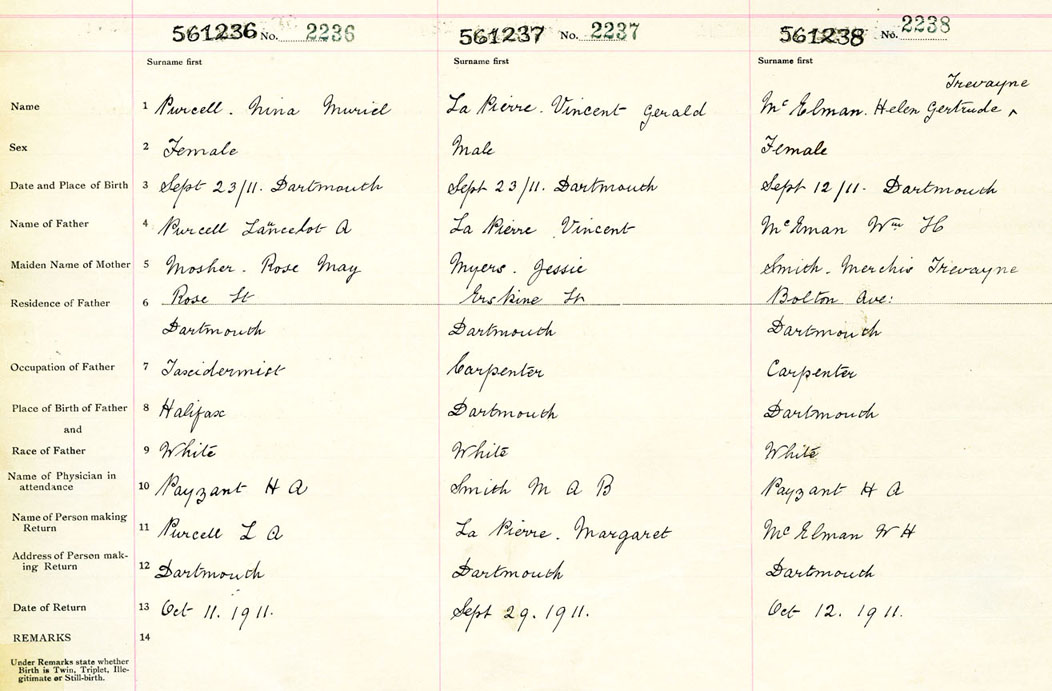 561236 No. 2236 561237 No. 2237 561238 No. 2238
Surname first Surname first Surname first
Trevayne
Name 1 Purcell. Nina Muriel La Pierre. Vincent Gerald McElman. Helen Gertrude ^
Sex 2 Female Male Female
Date and Place of Birth 3 Sept 23/11. Dartmouth Sept 23/11. Dartmouth Sept 12/11. Dartmouth
Name of Father 4 Purcell Lancelot A La Pierre Vincent McEman Wm H
Maiden Name of Mother 5 Mosher. Rose May Myers. Jessie Smith. Merchis Trevayne
Residence of Father 6 Rose St Erskine St Bolton Ave:
Dartmouth Dartmouth Dartmouth
Occupation of Father 7 Taxidermist Carpenter Carpenter
Place of Birth of Father 8 Halifax Dartmouth Dartmouth
and
Race of Father 9 White White White
Name of Physician in
attendance 10 Payzant H A Smith M A B Payzant H A
Name of Person making
Return 11 Purcell L A La Pierre. Margaret McElman W H
Address of Person mak-
ing Return 12 Dartmouth Dartmouth Dartmouth
Date of Return 13 Oct 11. 1911. Sept 29. 1911. Oct 12. 1911.
REMARKS 14
Under Remarks state whether
Birth is Twin, Triplet, Ille-
gitimate or Still-birth.